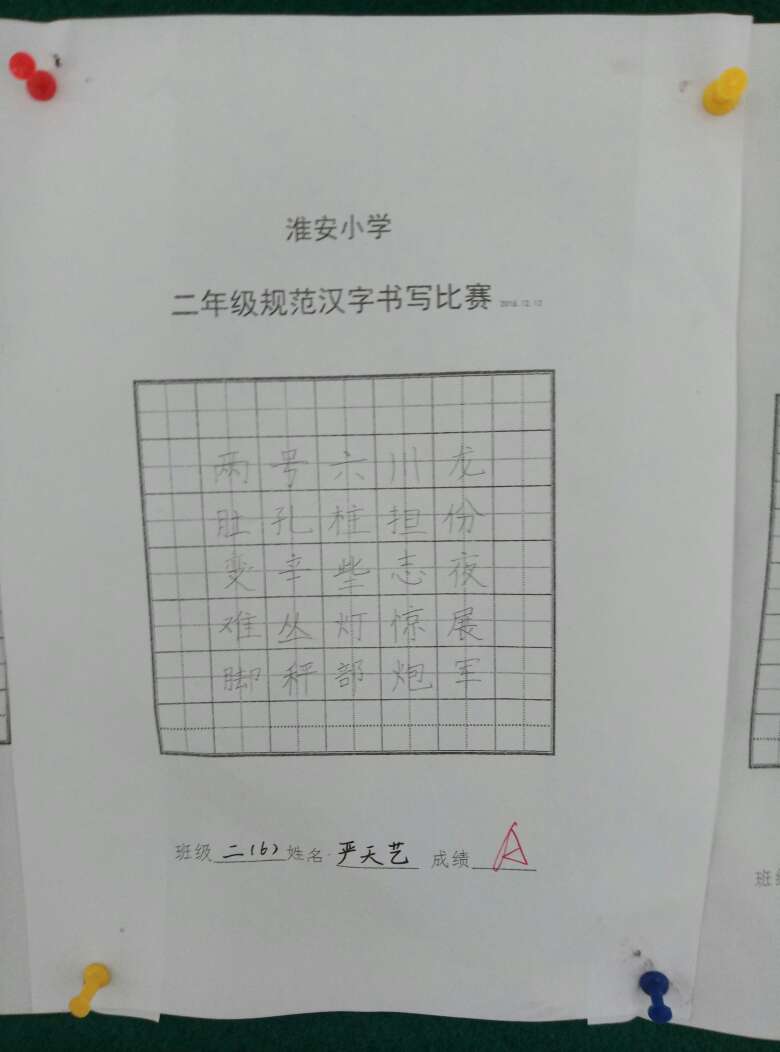 淮安小学
二年级规范汉字书写比赛 2016.12.12
两号六川龙
肚孔柱担份
变辛柴志夜
难丛灯惊展
脚秤部炮军
班级 二(6) 姓名 严天艺 成绩 A
班级